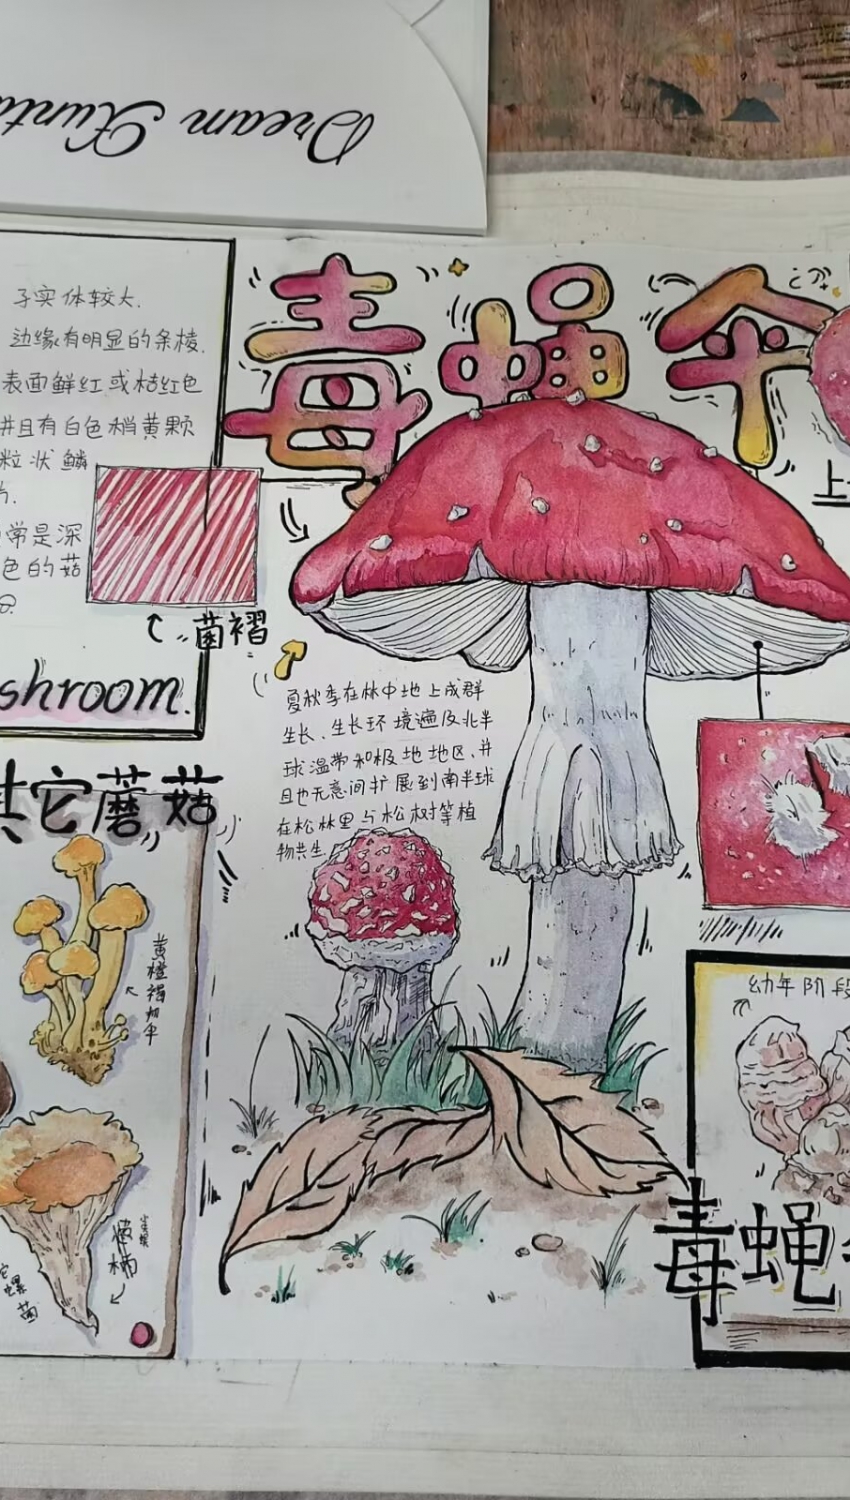 Dream
毒蝇伞
子实体较大.
边缘有明显的条棱.
表面鲜红或桔红色
并且有白色稍黄颗
粒状鳞
片.
常是深
色的菇
菌褶
shroom.
上
夏秋季在林中地上成群
生长、生长环境遍及北半
球温带和极地地区,并
且也无意间扩展到南半球
在松林里与松树等植
物共生.
其它蘑菇
黄橙褐加伞
菌柄
幼年阶段
毒蝇